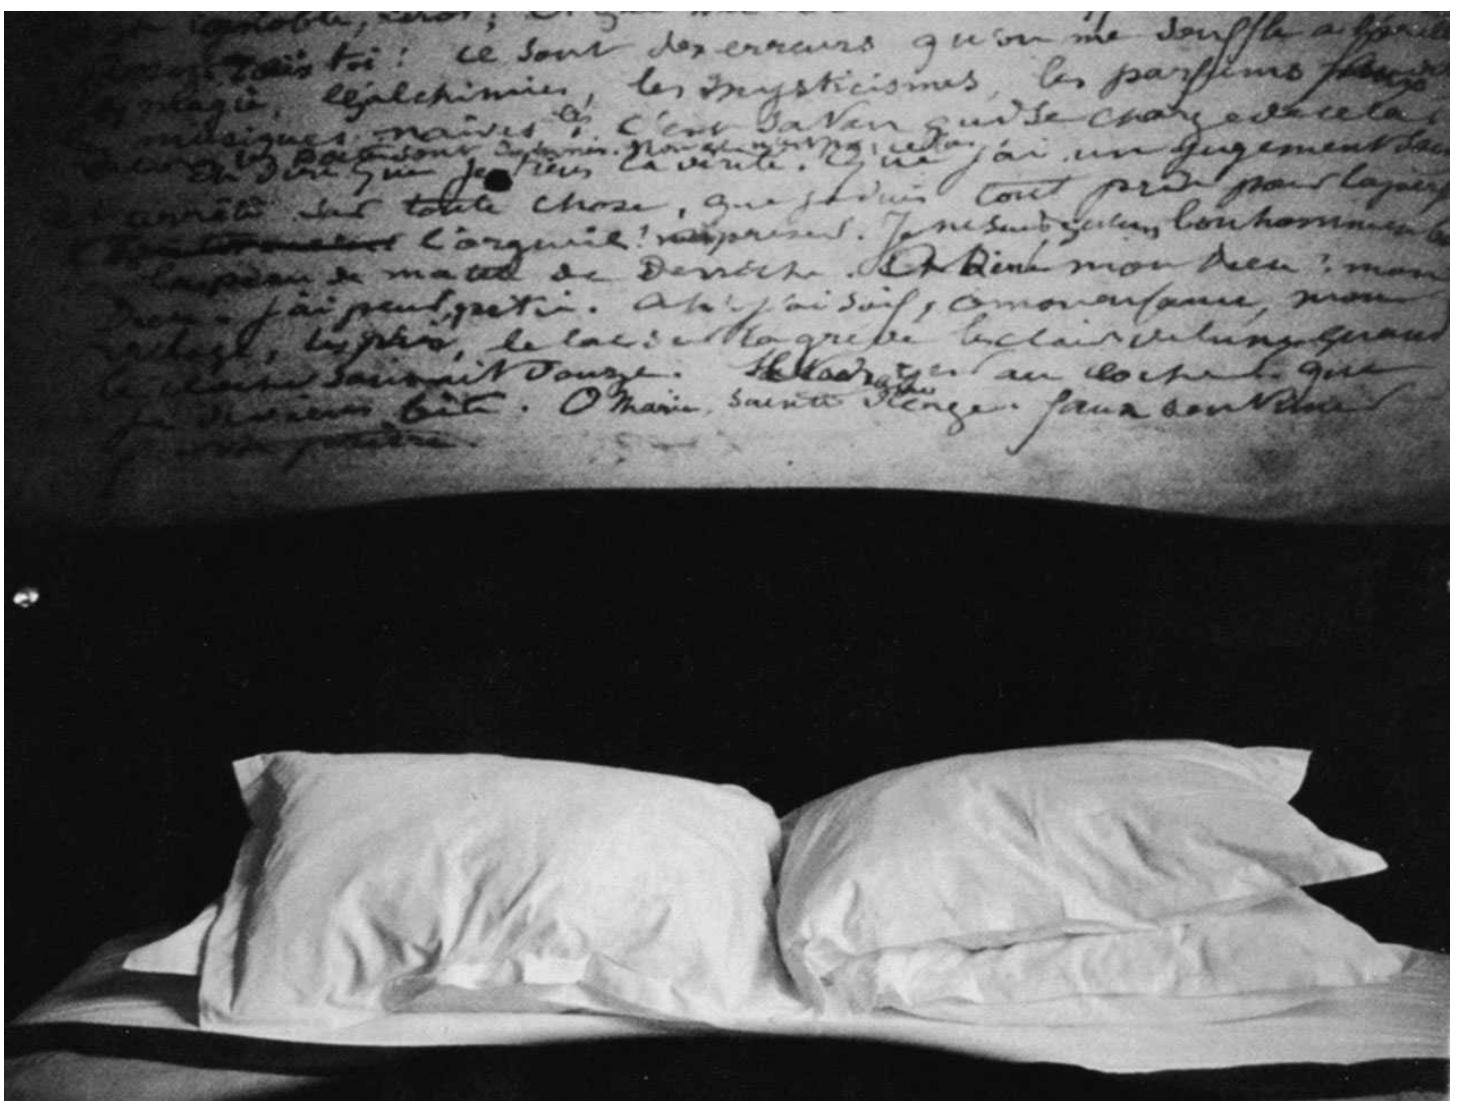 ignoble,
Tais toi! ce sont des erreurs qu'on me souffle a l'oreille
magie, les alchimies, les mysticismes, les parfums faux
musiques naïves. c'est Satan qui se charge de cela.
les poètes sont damnés. Non ce n'est pas cela.
Et dire que je tiens la vérité. Que j'ai un jugement sain
et arrêté sur toute chose, que je suis tout prêt pour la perf
l'orgueil! à présent. Je ne suis qu'un bonhomme en
la peau de ma tête se dessèche. Oh mon Dieu! mon
Dieu. j'ai peur, pitié. Ah! j'ai soif, o mon enfance, mon
village, les prés, le lac sur la grève le clair de lune quand
le clocher sonnait douze. au clocher. que
je deviens bête. O Marie, Sainte Vierge. faux sentiment
prière.